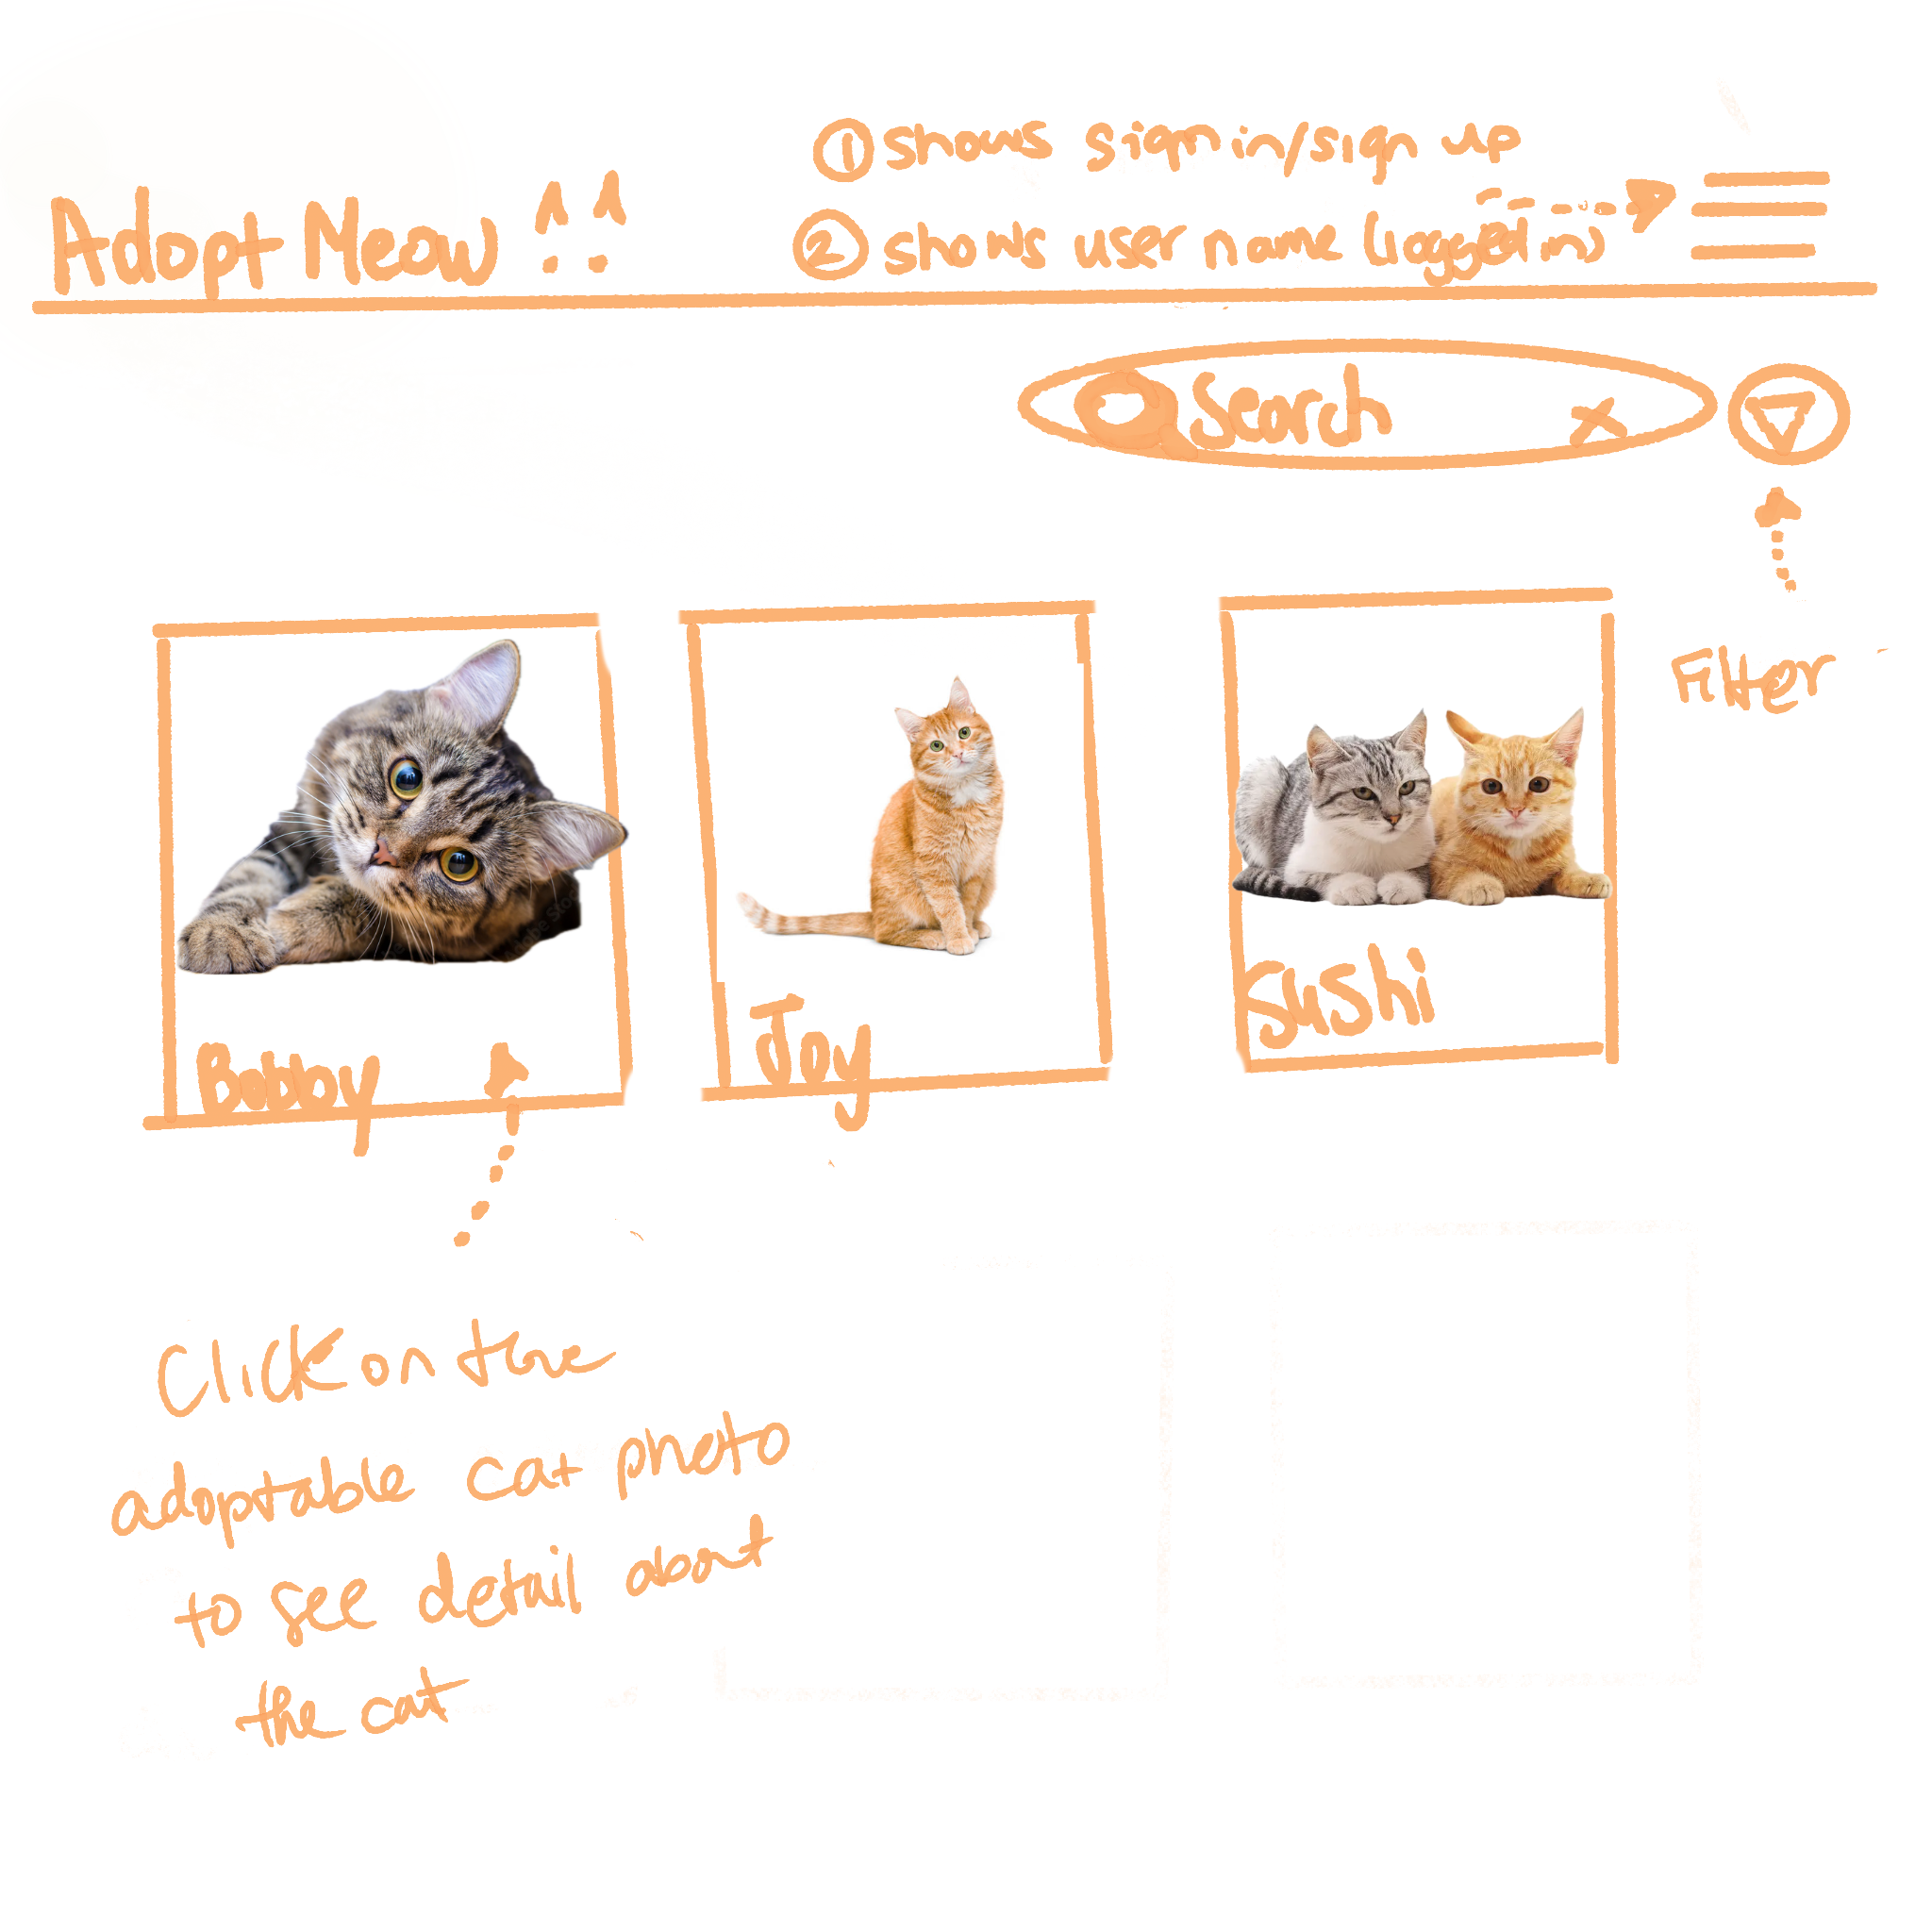 Adopt Meow
① shows sign in/sign up
② shows user name (logged in)
Search x
Filter
Bobby
Joy
Sushi
Click on the
adoptable cat photo
to see detail about
the cat